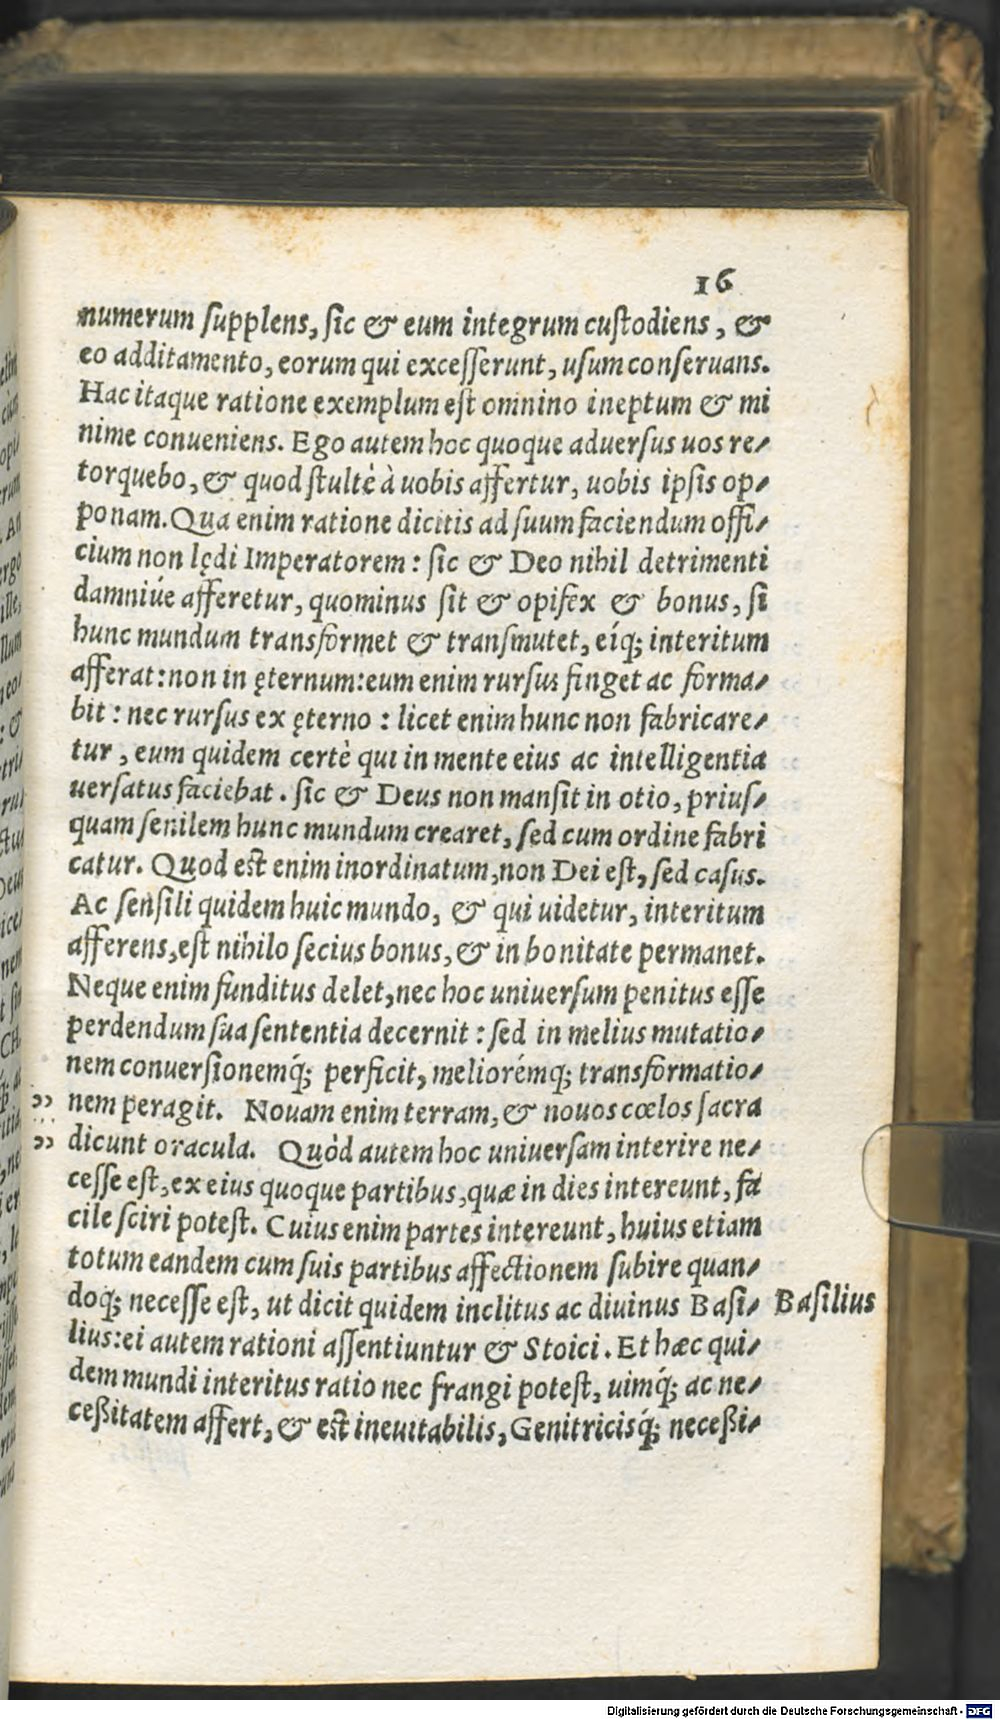 16
numerum supplens, sic & eum integrum custodiens, &
eo additamento, eorum qui excesserunt, usum conseruans.
Hac itaque ratione exemplum est omnino ineptum & mi
nime conueniens. Ego autem hoc quoque aduersus uos re/
torquebo, & quod stultè à uobis affertur, uobis ipsis op/
ponam. Qua enim ratione dicitis ad suum faciendum offi/
cium non lędi Imperatorem: sic & Deo nihil detrimenti
damniúe afferetur, quominus sit & opifex & bonus, si
hunc mundum transformet & transmutet, eíq; interitum
afferat: non in ęternum: eum enim rursus finget ac forma/
bit: nec rursus ex ęterno: licet enim hunc non fabricare/
tur, eum quidem certè qui in mente eius ac intelligentia
uersatus faciebat. sic & Deus non mansit in otio, prius/
quam senilem hunc mundum crearet, sed cum ordine fabri
catur. Quod est enim inordinatum, non Dei est, sed casus.
Ac sensili quidem huic mundo, & qui uidetur, interitum
afferens, est nihilo secius bonus, & in bonitate permanet.
Neque enim funditus delet, nec hoc uniuersum penitus esse
perdendum sua sententia decernit: sed in melius mutatio/
nem conuersionemq́; perficit, meliorémq; transformatio/
" nem peragit. Nouam enim terram, & nouos cœlos sacra
" dicunt oracula. Quòd autem hoc uniuersam interire ne/
cesse est, ex eius quoque partibus, quæ in dies intereunt, fa
cile sciri potest. Cuius enim partes intereunt, huius etiam
totum eandem cum suis partibus affectionem subire quan/
doq; necesse est, ut dicit quidem inclitus ac diuinus Basi/ Basilius
lius: ei autem rationi assentiuntur & Stoici. Et hæc qui/
dem mundi interitus ratio nec frangi potest, uimq́; ac ne/
ceßitatem affert, & est ineuitabilis, Genitricisq́; neceßi/
Digitalisierung gefördert durch die Deutsche Forschungsgemeinschaft - DFG